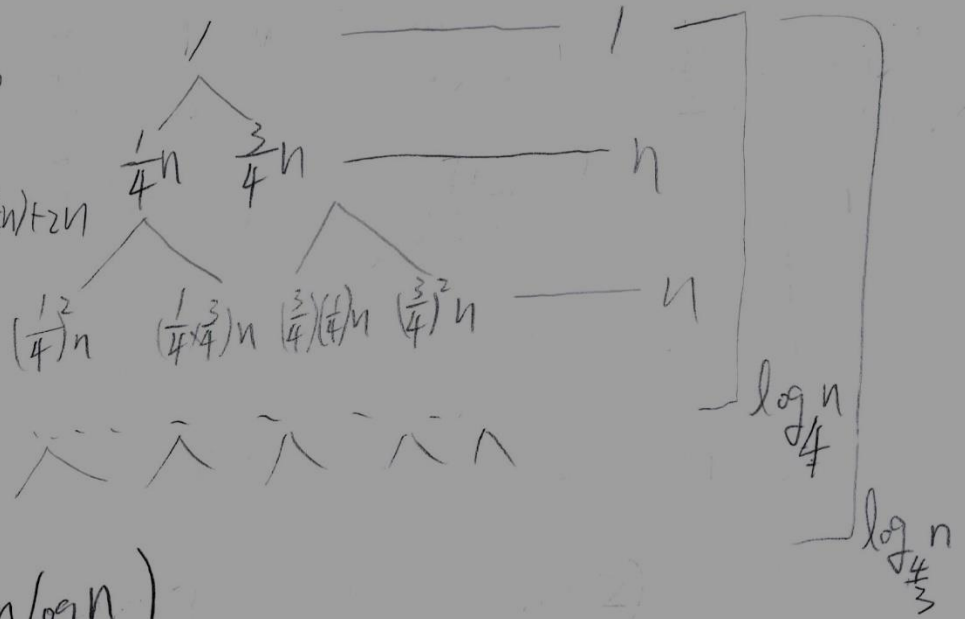 1 1
1/4 n 3/4 n n
n)+2n
(1/4)²n (1/4×3/4)n (3/4)(1/4)n (3/4)²n n
log₄ n
log_{4/3} n
n log n)